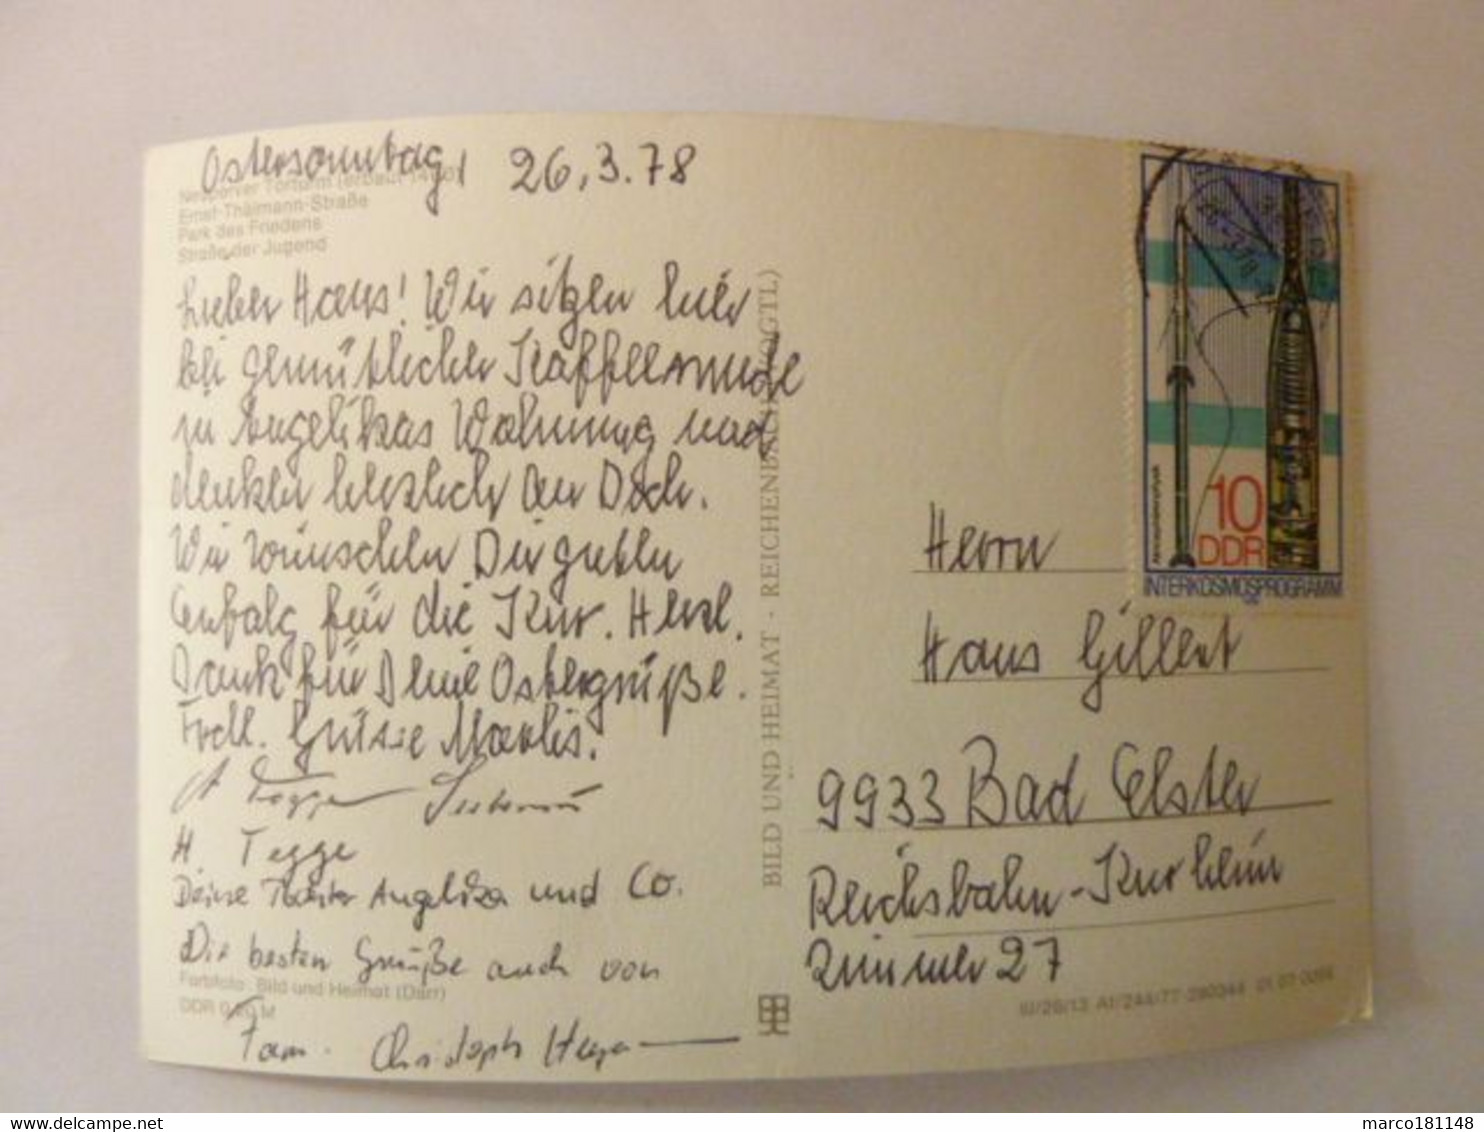 Ostersonntag, 26.3.78
Neupoppener Torturm
Ernst-Thälmann-Straße
Park des Friedens
Straße der Jugend
Lieber Hans! Wir sitzen hier
bei gemütlicher Kaffeerunde
in Angelikas Wohnung und
denken herzlich an Dich.
Wir wünschen Dir guten
Erfolg für die Kur. Herzl.
Dank für Deine Ostergrüße.
Frdl. Grüsse Marlis.
H. Tegge
Deine Tochter Angelika und Co.
Die besten Grüße auch von
Farbfoto: Bild und Heimat (Darr)
DDR 0,20 M
Fam. Christoph
BILD UND HEIMAT · REICHENBACH (VOGTL)
10
DDR
INTERKOSMOSPROGRAMM
Herrn
Hans Gillert
9933 Bad Elster
Reichsbahn-Kurheim
Zimmer 27
III/26/13 A1/244/77-280344 01 07 0056
marco181148